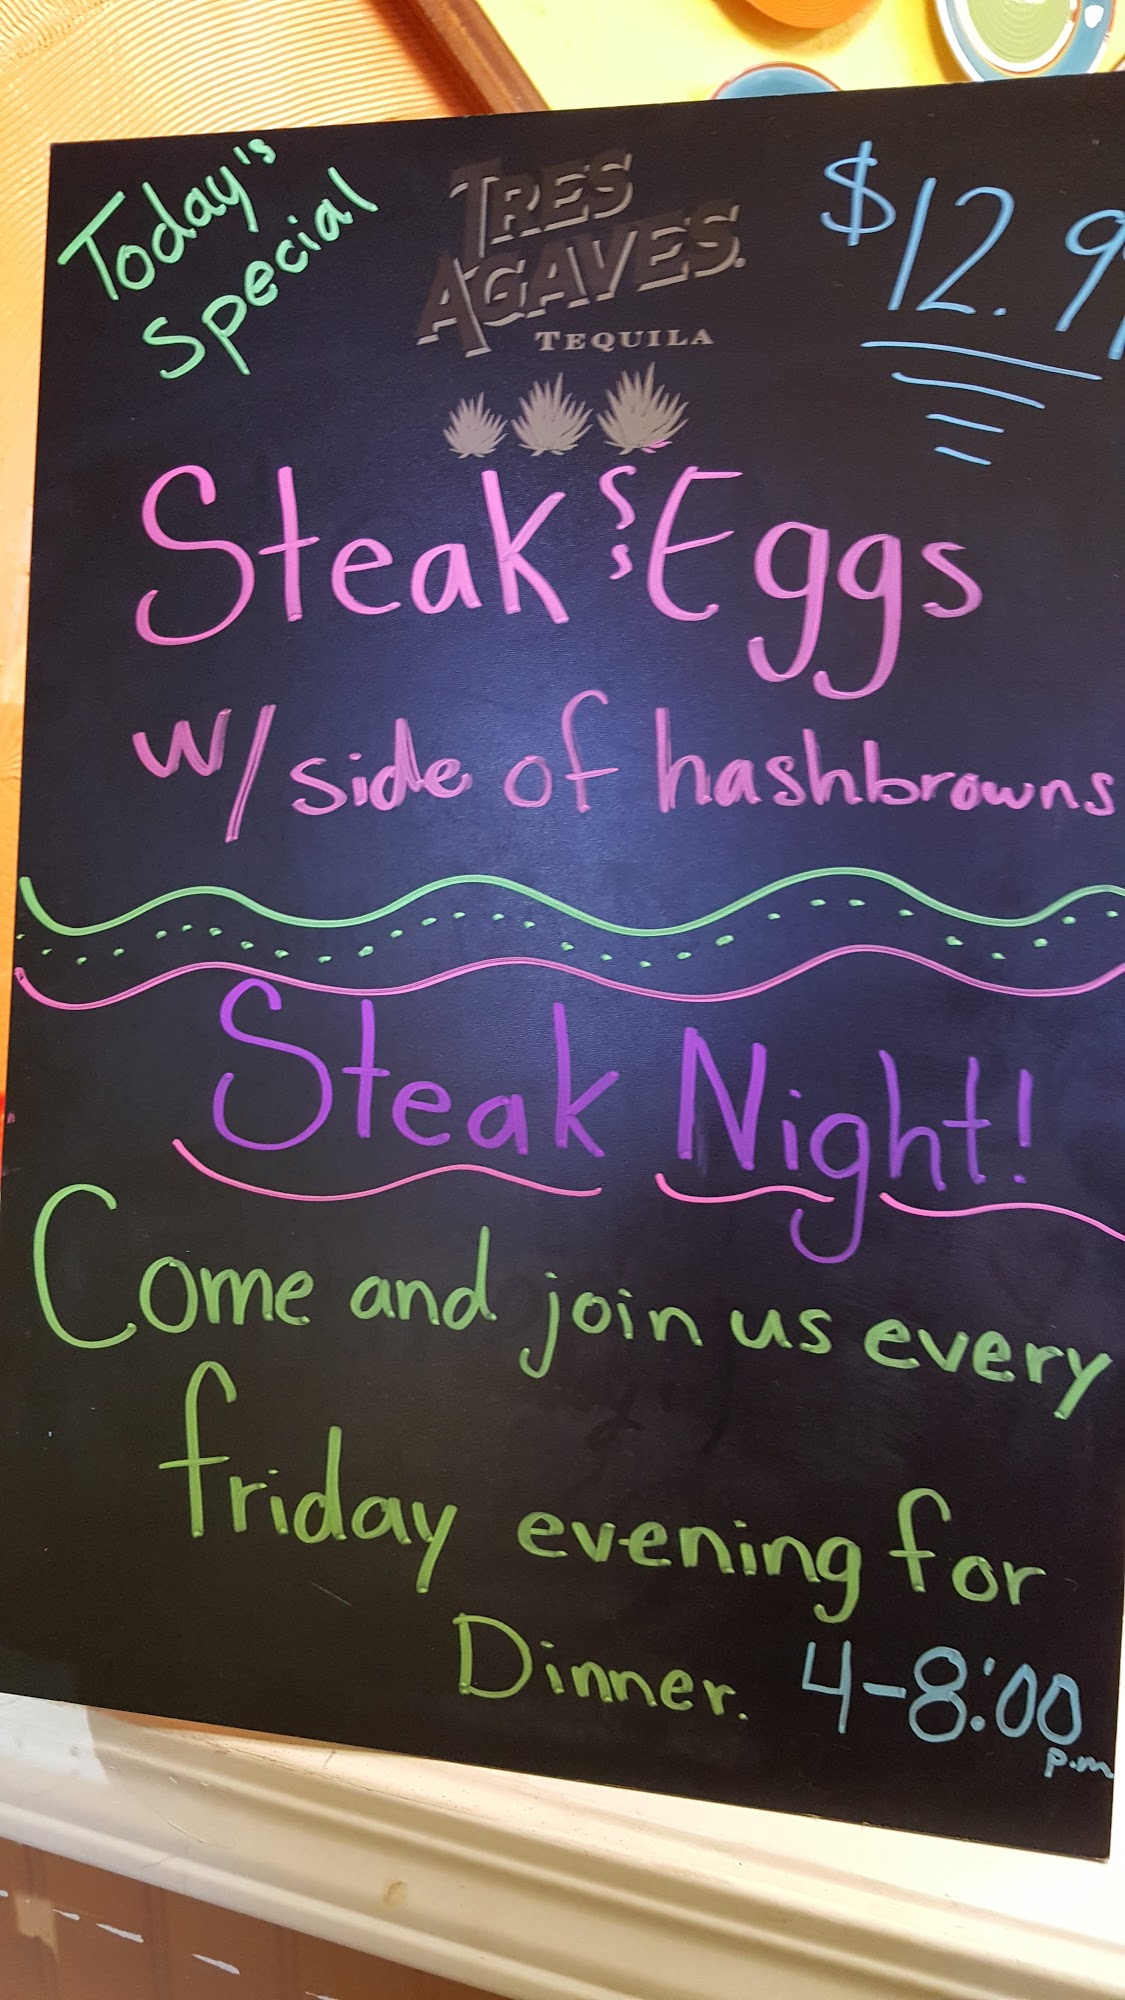 Today's
Special
TRES
AGAVES
TEQUILA
$12.99
Steak & Eggs
w/ side of hashbrowns
Steak Night!
Come and join us every
friday evening for
Dinner. 4-8:00
p.m